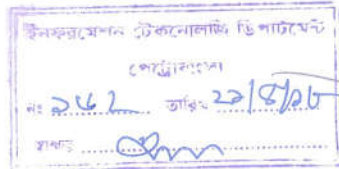 ইনফরমেশন টেকনোলজি ডিপার্টমেন্ট
পেট্রোবাংলা
নং ২৫২ তারিখ ২৯/৪/১৮
স্বাক্ষর